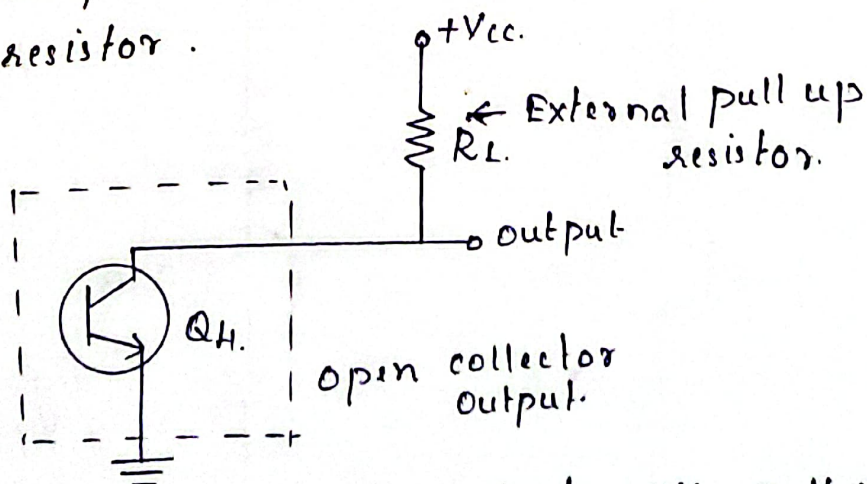 resistor.
+Vcc.
← External pull up
RL.
resistor.
output
Q4.
open collector
output.